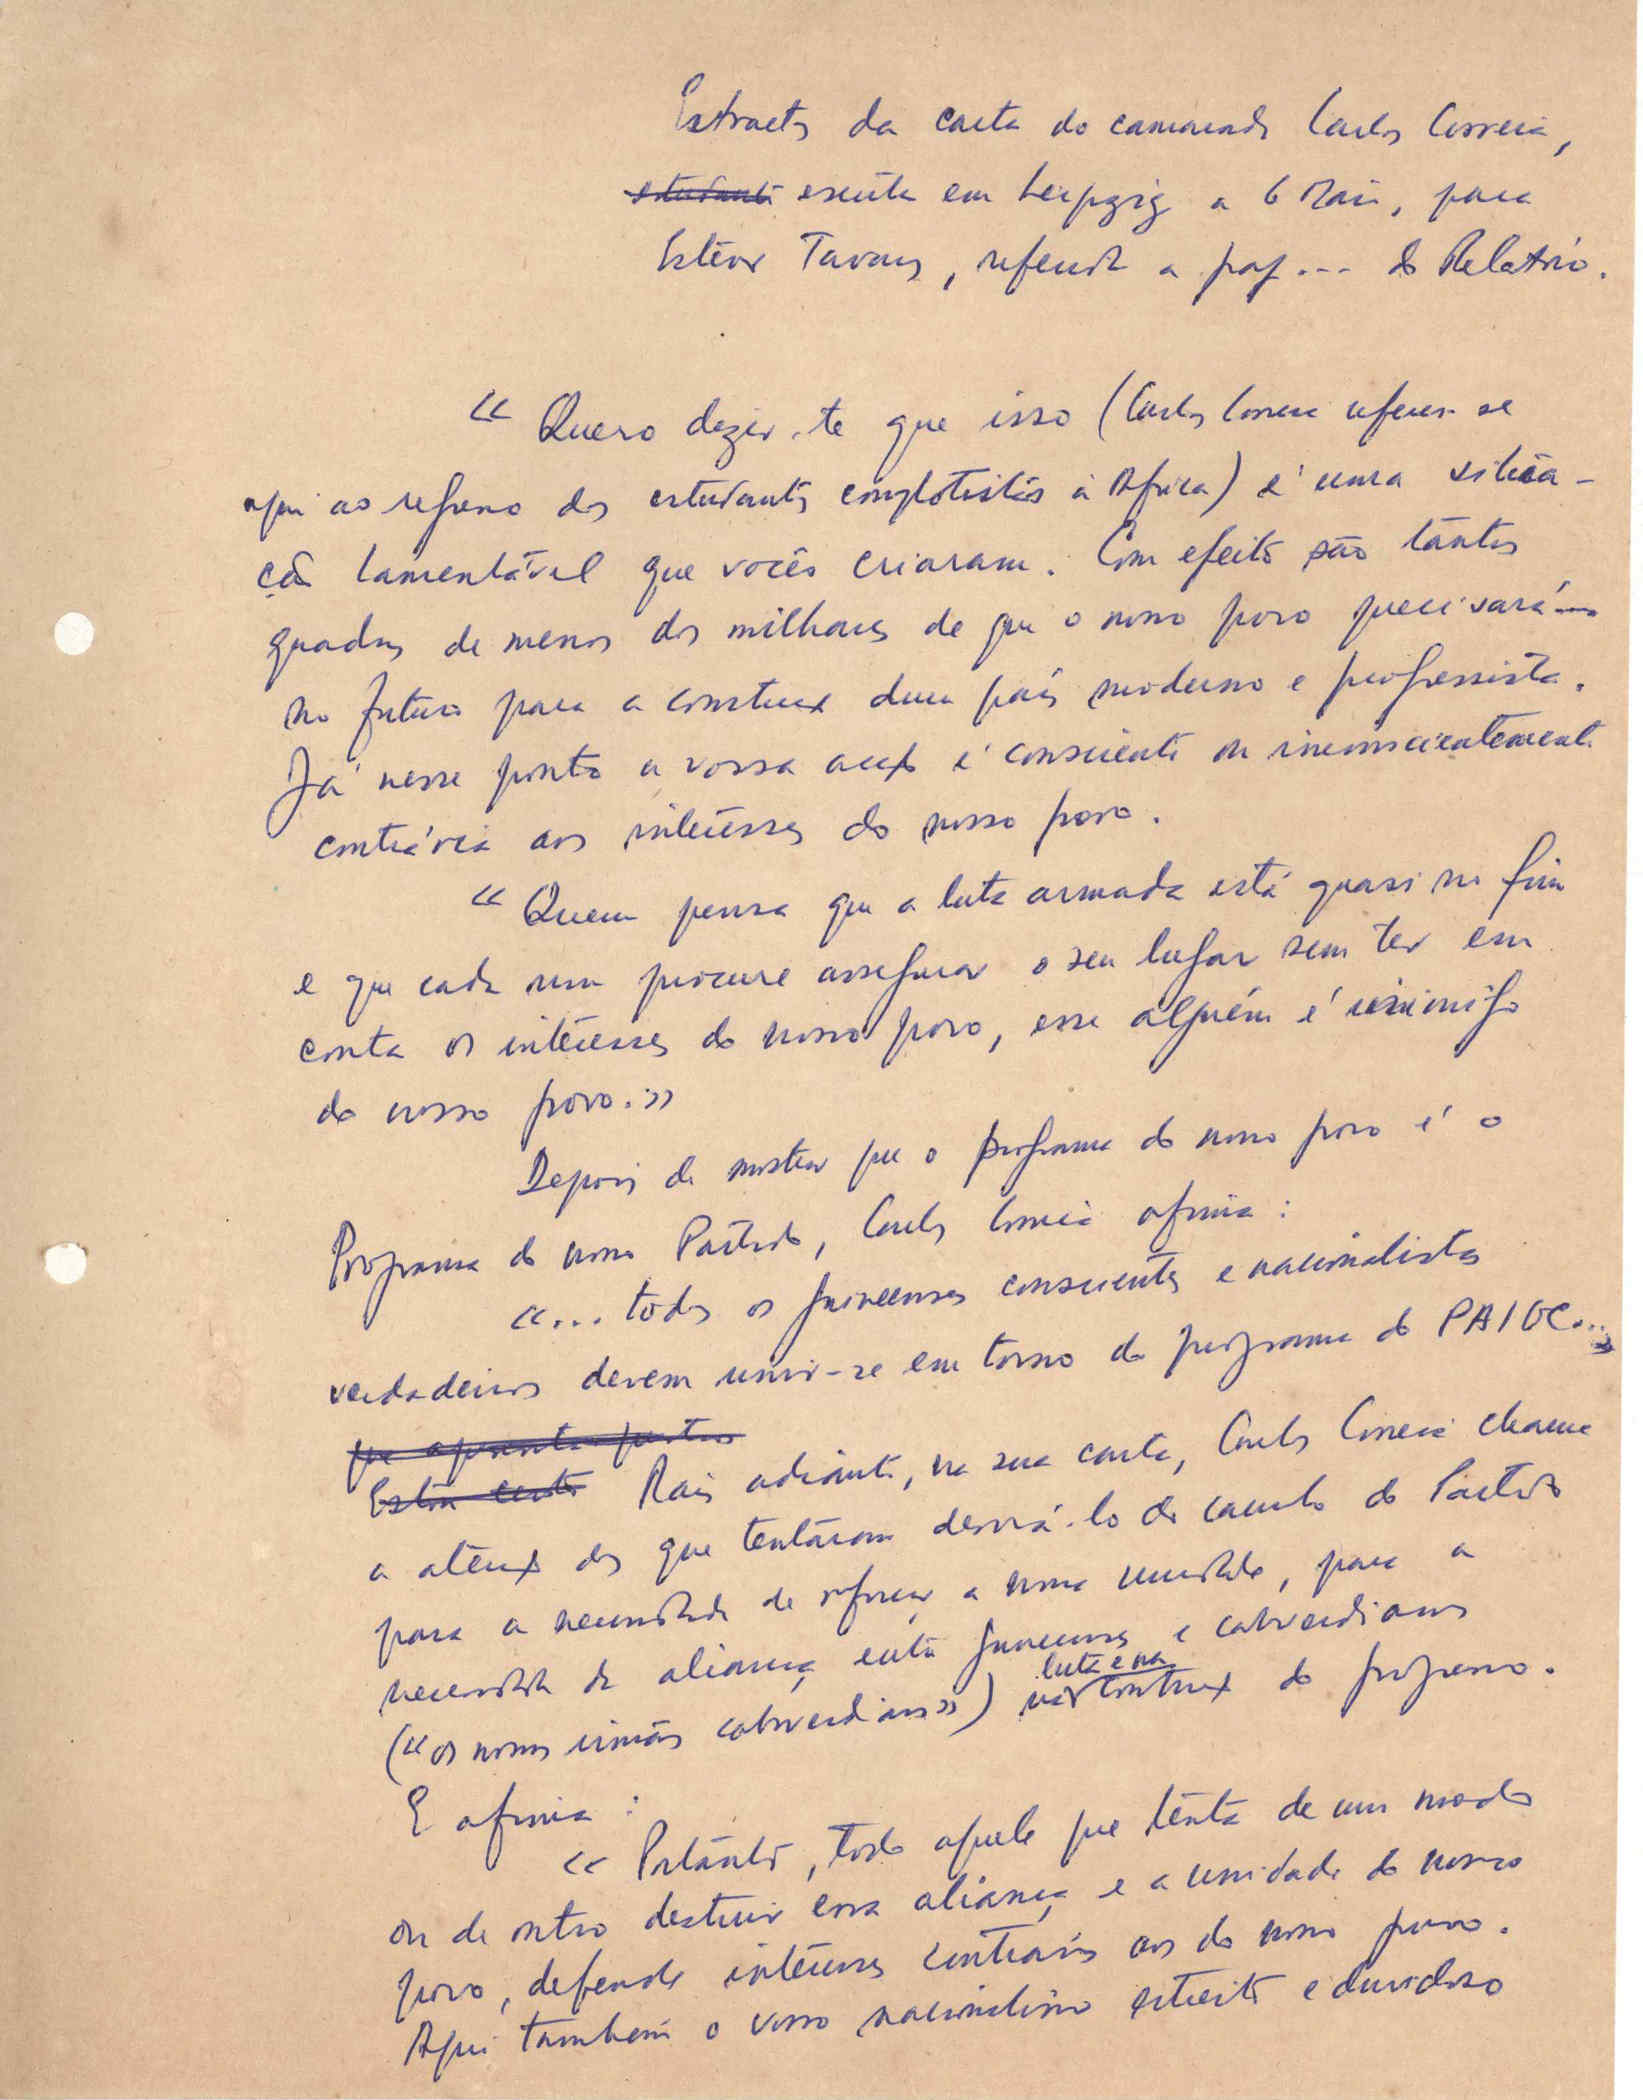 Extractos da carta do camarada Carlos Correia,
estudante escrita em Leipzig a 6 Maio, para
Estêvão Tavares, referido a pag... do Relatório.
« Quero dizer-te que isso (Carlos Correia refere-se
aqui ao regresso dos estudantes complotistas à África) é uma situa-
ção lamentável que vocês criaram. Com efeito são tantos
quadros de menos dos milhares de que o nosso povo precisará
no futuro para a construção dum país moderno e progressista.
Já nesse ponto a vossa acção é consciente ou inconscientemente
contrária aos interesses do nosso povo.
« Quem pensa que a luta armada está quasi no fim
e que cada um procure assegurar o seu lugar sem ter em
conta os interesses do nosso povo, esse alguém é inimigo
do nosso povo.»
Depois de mostrar que o programa do nosso povo é o
Programa do nosso Partido, Carlos Correia afirma:
«... todos os guineenses conscientes e nacionalistas
verdadeiros devem unir-se em torno do programa do PAIGC...»
que apresenta
Estou certo Mais adiante, na sua carta, Carlos Correia chama
a atenção dos que tentaram desviá-lo do caminho do Partido
para a necessidade de reforçar a nossa unidade, para a
necessidade da aliança entre guineenses e caboverdianos
(«os nossos irmãos caboverdianos») na luta e na construção do progresso.
E afirma:
« Portanto, todo aquele que tenta de um modo
ou de outro destruir essa aliança e a unidade do nosso
povo, defende interesses contrários aos do nosso povo.
Aqui também o vosso nacionalismo estreito e duvidoso